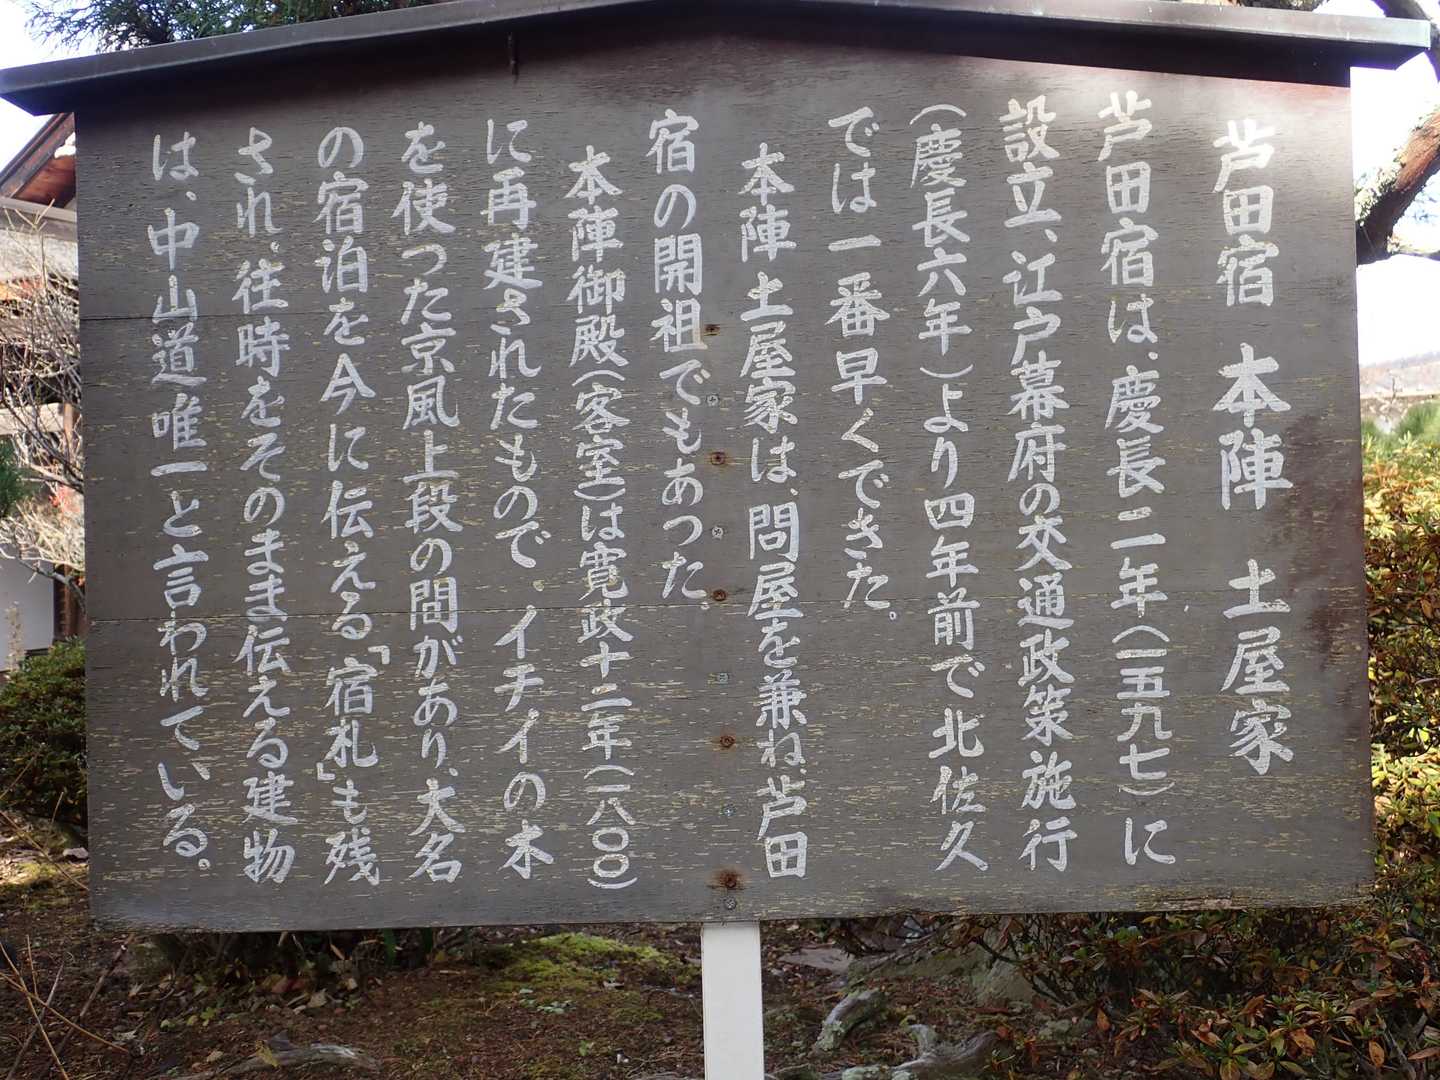 芦田宿 本陣 土屋家
芦田宿は、慶長二年(一五九七)に
設立、江戸幕府の交通政策施行
(慶長六年)より四年前で北佐久
では一番早くできた。
本陣土屋家は、問屋を兼ね、芦田
宿の開祖でもあった。
本陣御殿(客室)は寛政十二年(一八〇〇)
に再建されたもので、イチイの木
を使った京風上段の間があり、大名
の宿泊を今に伝える「宿札」も残
され、往時をそのまま伝える建物
は、中山道唯一と言われている。